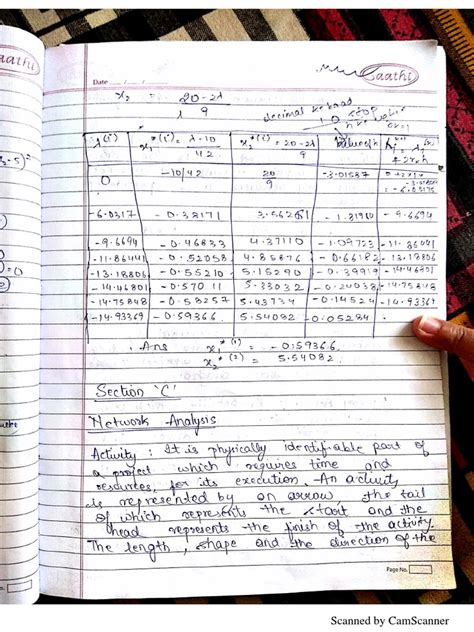 Saathi
Date
x₂ = 20-2λ / 9
λ(i) | x₁*(i) = λ-10 / 42 | x₂*(i) = 20-2λ / 9 | Value of h
0 | -10/42 | 20/9 | -3.01587
-6.0317 | -0.38171 | 3.56261 | -1.81910 | -9.6694
-9.6694 | -0.46833 | 4.37110 | -1.09723 | -11.86041
-11.86441 | -0.52058 | 4.85876 | -0.66182 | -13.18806
-13.18806 | -0.55210 | 5.15290 | -0.39919 | -14.46801
-14.46801 | -0.57011 | 5.33032 | -0.24038 | -14.75848
-14.75848 | -0.58257 | 5.43734 | -0.14524 | -14.93369
-14.93369 | -0.59366 | 5.54082 | -0.05284
Ans x₁*(1) = -0.59366
x₂*(2) = 5.54082
Section 'C'
Network Analysis
Activity : It is physically identifiable part of
a project which requires time and
resources for its execution. An activity
is represented by an arrow, the tail
of which represents the start and the
head represents the finish of the activity.
The length, shape and the direction of the
Page No.
Scanned by CamScanner